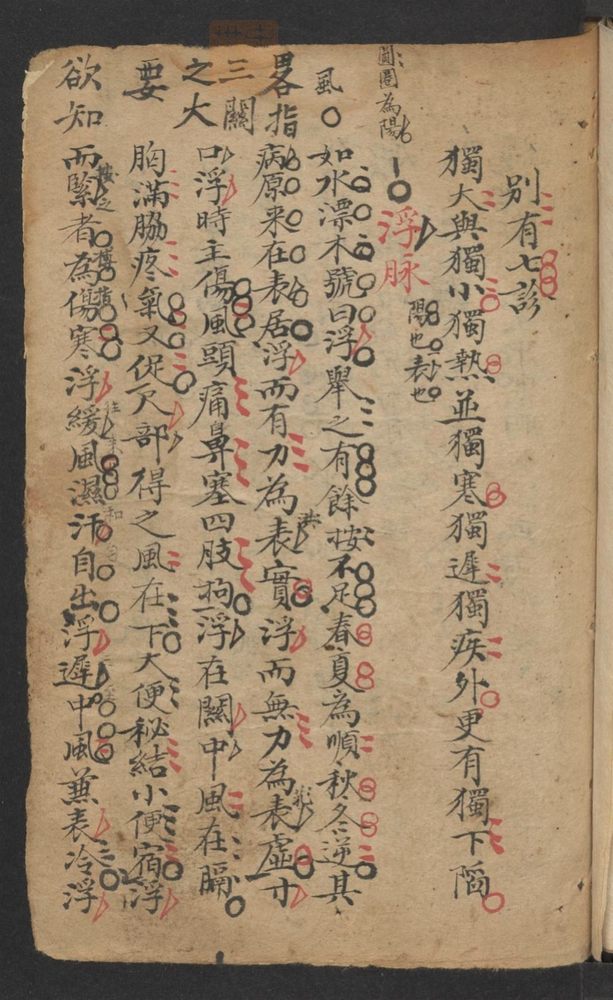 別有七診
獨大與獨小獨熱並獨寒獨遲獨疾外更有獨下陷
圓圈為陽
浮脉 陽也表也
風
如水漂木號曰浮舉之有餘按不足春夏為順秋冬逆其
畧指
病原来在表居浮而有力為表實浮而無力為表虛寸
三關
口浮時主傷風頭痛鼻塞四肢拘浮在關中風在膈
之大
胸滿脇疼氣又促尺部得之風在下大便秘結小便宿浮
要
欲知
而緊者為傷寒浮緩風濕汗自出浮遲中風兼表冷浮